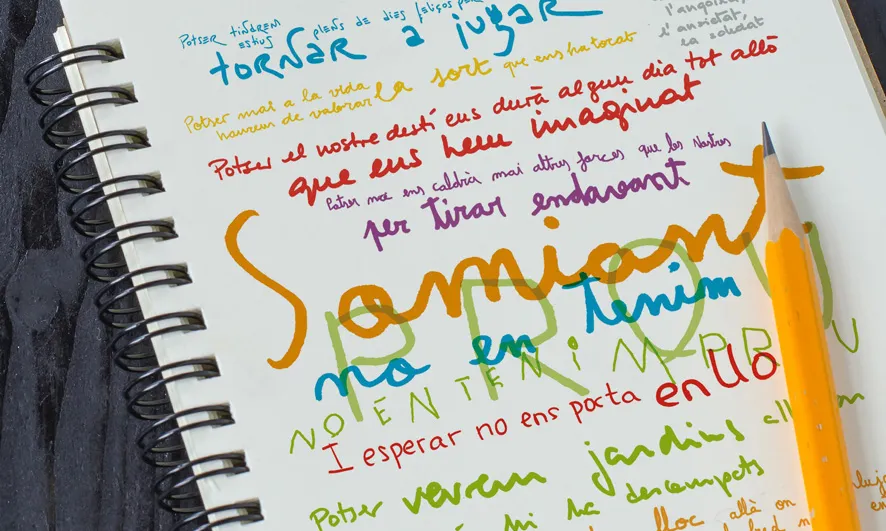 Potser tindrem estius plens de dies feliços per
tornar a jugar
l'angoixa,
l'ansietat,
la soledat
Potser mai a la vida
haurem de valorar la sort que ens ha tocat
Potser el nostre destí ens durà algun dia tot allò
que ens hem imaginat
Potser no ens caldrà mai altres forces que les nostres
per tirar endavant
Somiant
PROU
no en tenim
NO EN TENIM PROU
I esperar no ens porta enlloc
Potser veurem jardins allà on
hi ha descampats
lloc allà on